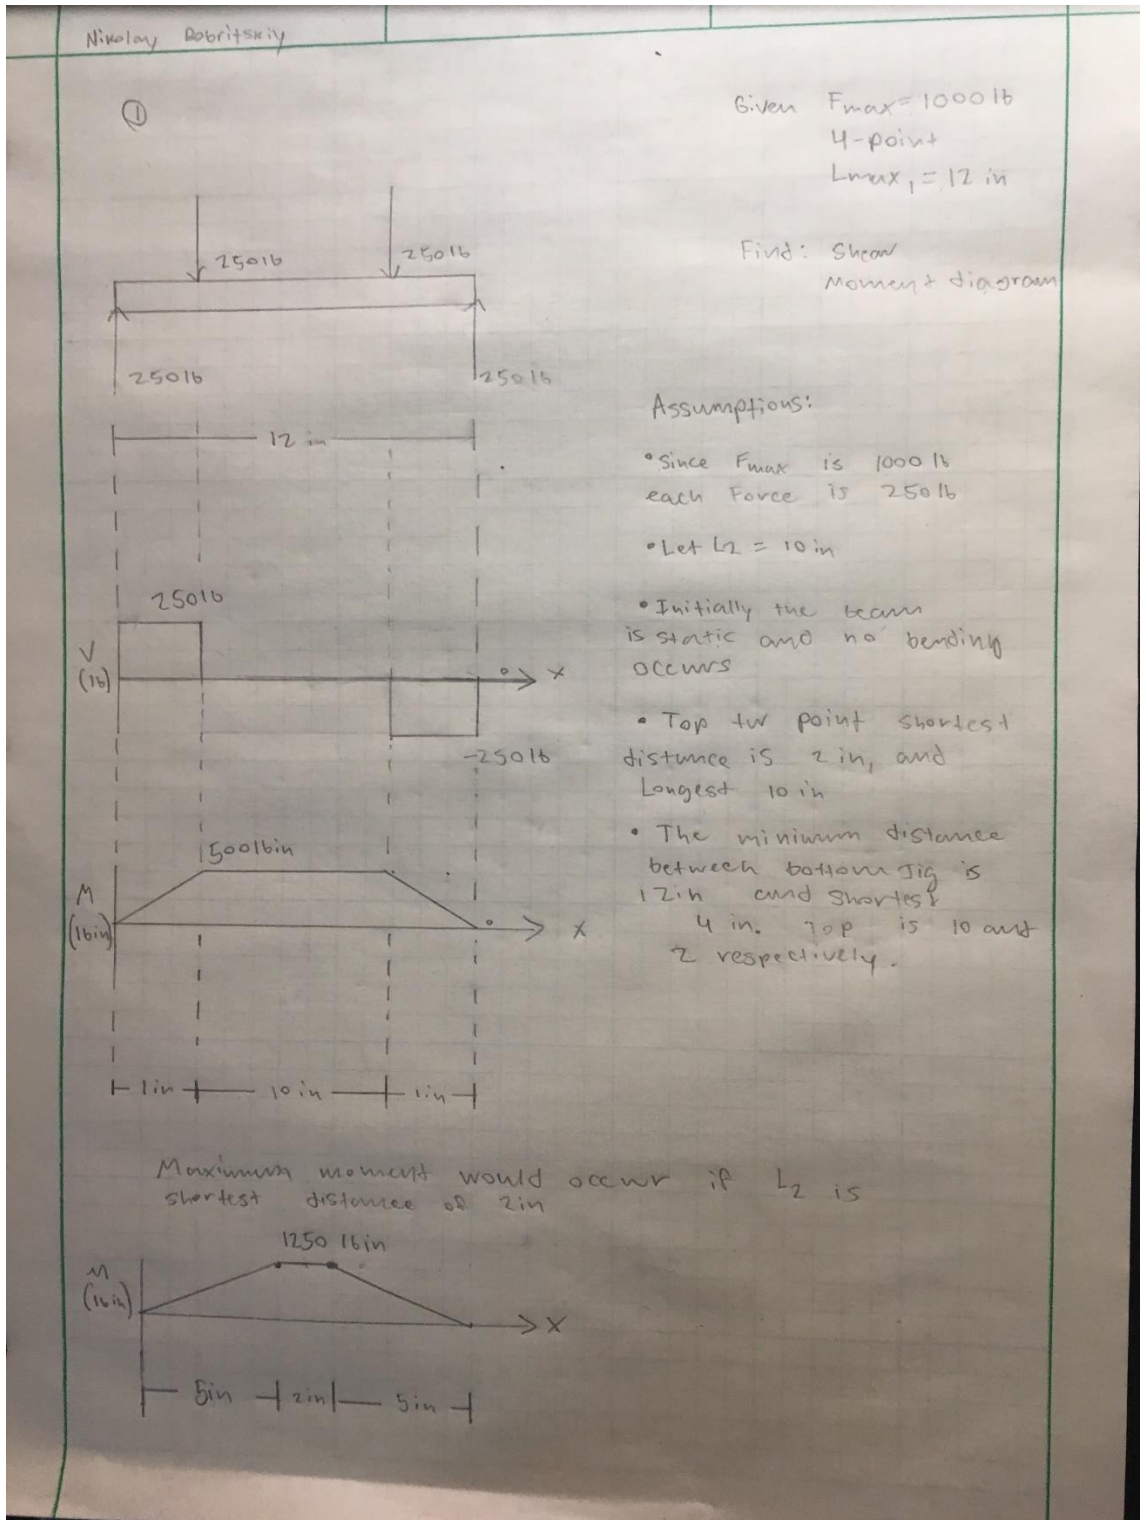 Nikolay Dobritskiy
①
Given Fmax = 1000 lb
4-point
Lmax, = 12 in
Find: Shear
Moment diagram
250 lb
250 lb
250 lb
250 lb
12 in
Assumptions:
• Since Fmax is 1000 lb
each Force is 250 lb
• Let L2 = 10 in
• Initially the beam
is static and no bending
occurs
• Top tw point shortest
distance is 2 in, and
Longest 10 in
• The minimum distance
between bottom Jig is
12in and shortest
4 in. Top is 10 and
2 respectively.
250 lb
V
(lb)
X
-250 lb
500 lb in
M
(lbin)
X
1in
10 in
1in
Maximum moment would occur if L2 is
shortest distance of 2in
1250 lbin
M
(lbin)
X
5in
2in
5in